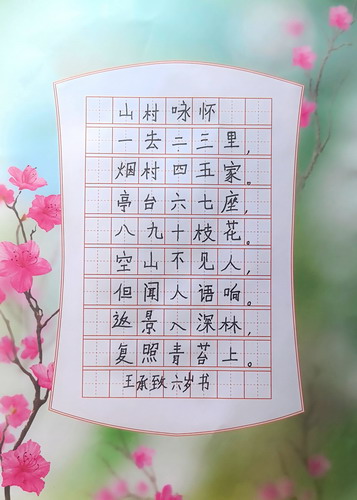 山村咏怀
一去二三里，
烟村四五家。
亭台六七座，
八九十枝花。
空山不见人，
但闻人语响。
返景入深林，
复照青苔上。
王承致六岁书